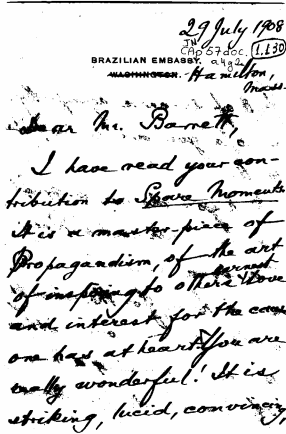 29 July 1908
CAp 57 doc.
1.130
BRAZILIAN EMBASSY.
WASHINGTON.
Hamilton,
Mass.
Dear Mr. Barrett,
I have read your con-
tribution to Spare Moments.
It is a master-piece of
Propagandism, of the art
of inspiring to others earnest love
and interest for the cause
one has at heart. You are
really wonderful! It is
striking, lucid, convincing,